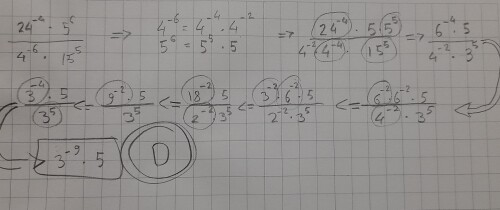 24⁻⁴ · 5⁶ / 4⁻⁶ · 15⁵ => 4⁻⁶ = 4⁻⁴ · 4⁻² 5⁶ = 5⁵ · 5 => 24⁻⁴ · 5 · 5⁵ / 4⁻² · 4⁻⁴ · 15⁵ => 6⁻⁴ · 5 / 4⁻² · 3⁵
3⁻⁴ · 5 / 3⁵ <= 9⁻² · 5 / 3⁵ <= 18⁻² · 5 / 2⁻² 3⁵ <= 3⁻² · 6⁻² · 5 / 2⁻² · 3⁵ <= 6⁻² 6⁻² · 5 / 4⁻² · 3⁵
3⁻⁹ · 5 D